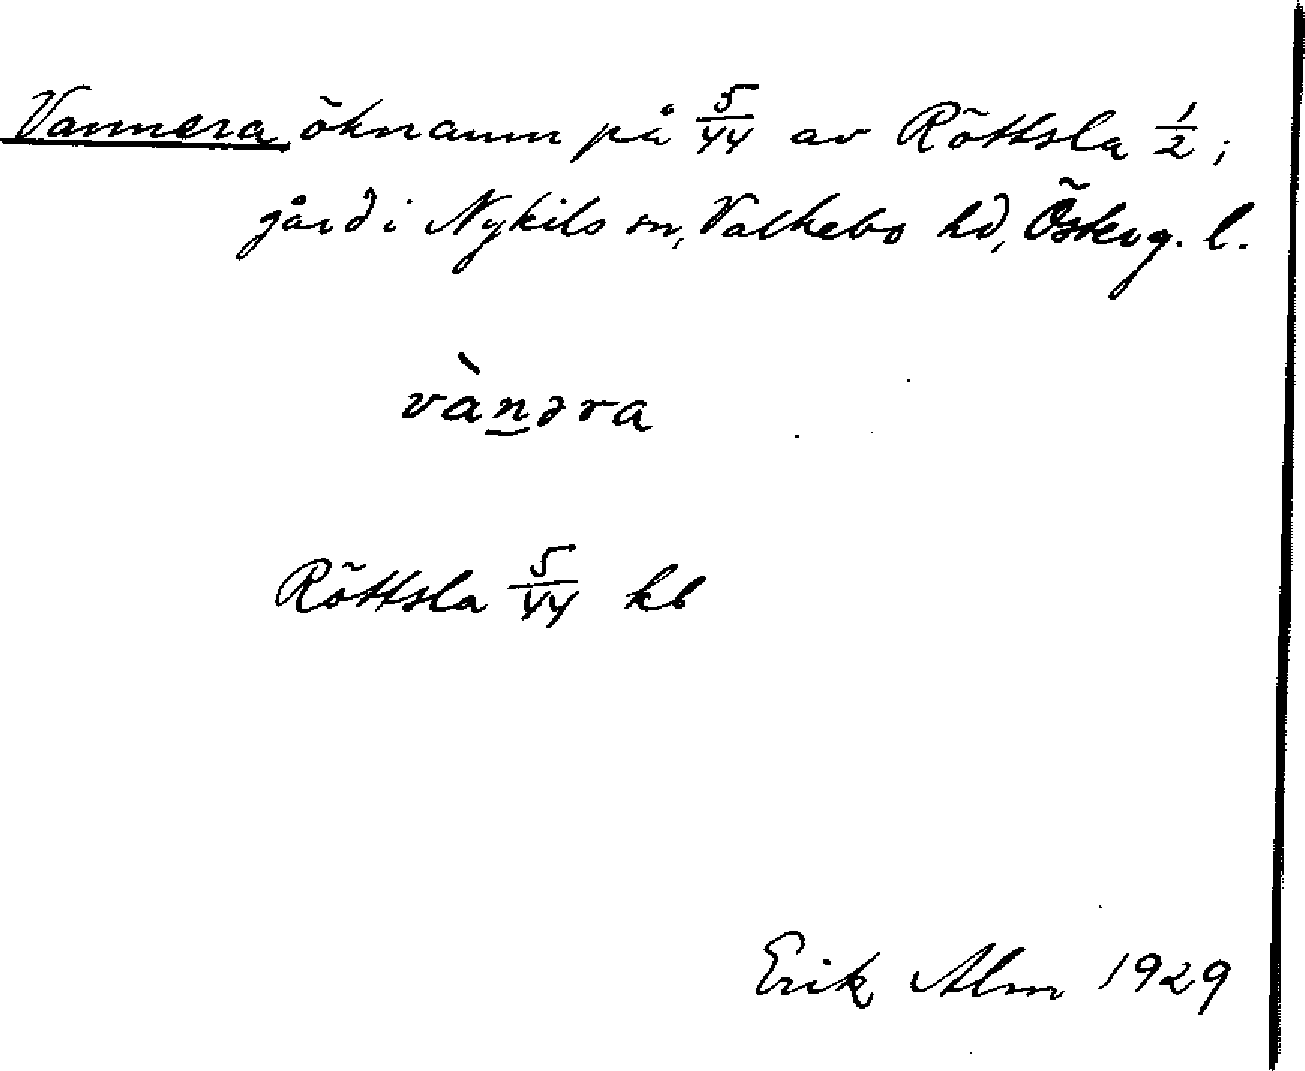 Vannera öknamn på 5/44 av Röttsla 1/2;
gård i Nykils sn, Valkebo hd, Österg. l.
vànəra
Röttsla 5/44 kb
Erik Alm 1929